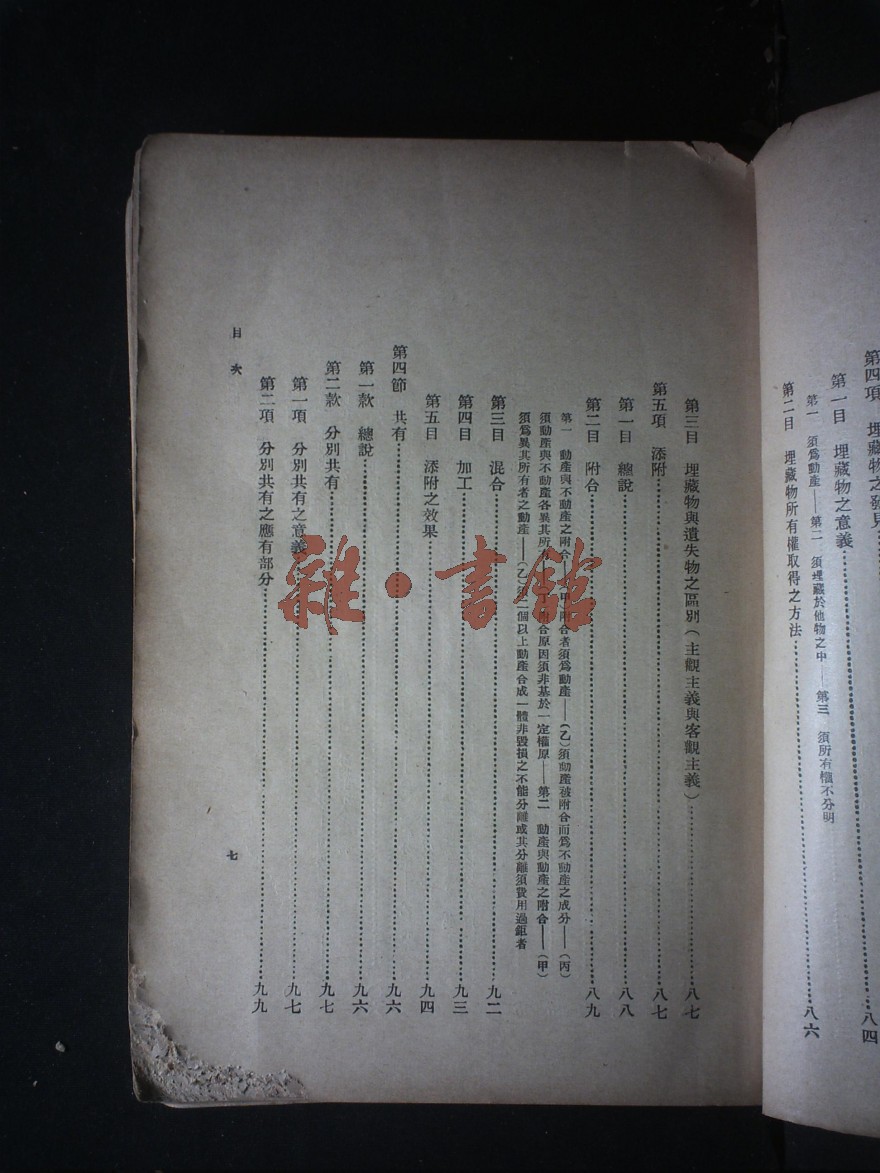 第四項　埋藏物之發見……八四
第一目　埋藏物之意義
第一　須爲動產——第二　須埋藏於他物之中——第三　須所有權不分明
第二目　埋藏物所有權取得之方法……八六
第三目　埋藏物與遺失物之區別（主觀主義與客觀主義）……八七
第五項　添附……八七
第一目　總說……八八
第二目　附合……八九
第一　動產與不動產之附合——（甲）附合者須爲動產——（乙）須動產被附合而爲不動產之成分——（丙）
須動產與不動產各異其所有者附合原因須非基於一定權原——第二　動產與動產之附合——（甲）
須爲異其所有者之動產——（乙）須二個以上動產合成一體非毀損之不能分離或其分離須費用過鉅者
第三目　混合……九二
第四目　加工……九三
第五目　添附之效果……九四
第四節　共有……九六
第一款　總說……九六
第二款　分別共有……九七
第一項　分別共有之意義……九七
第二項　分別共有之應有部分……九九
目次
七
雜·書館